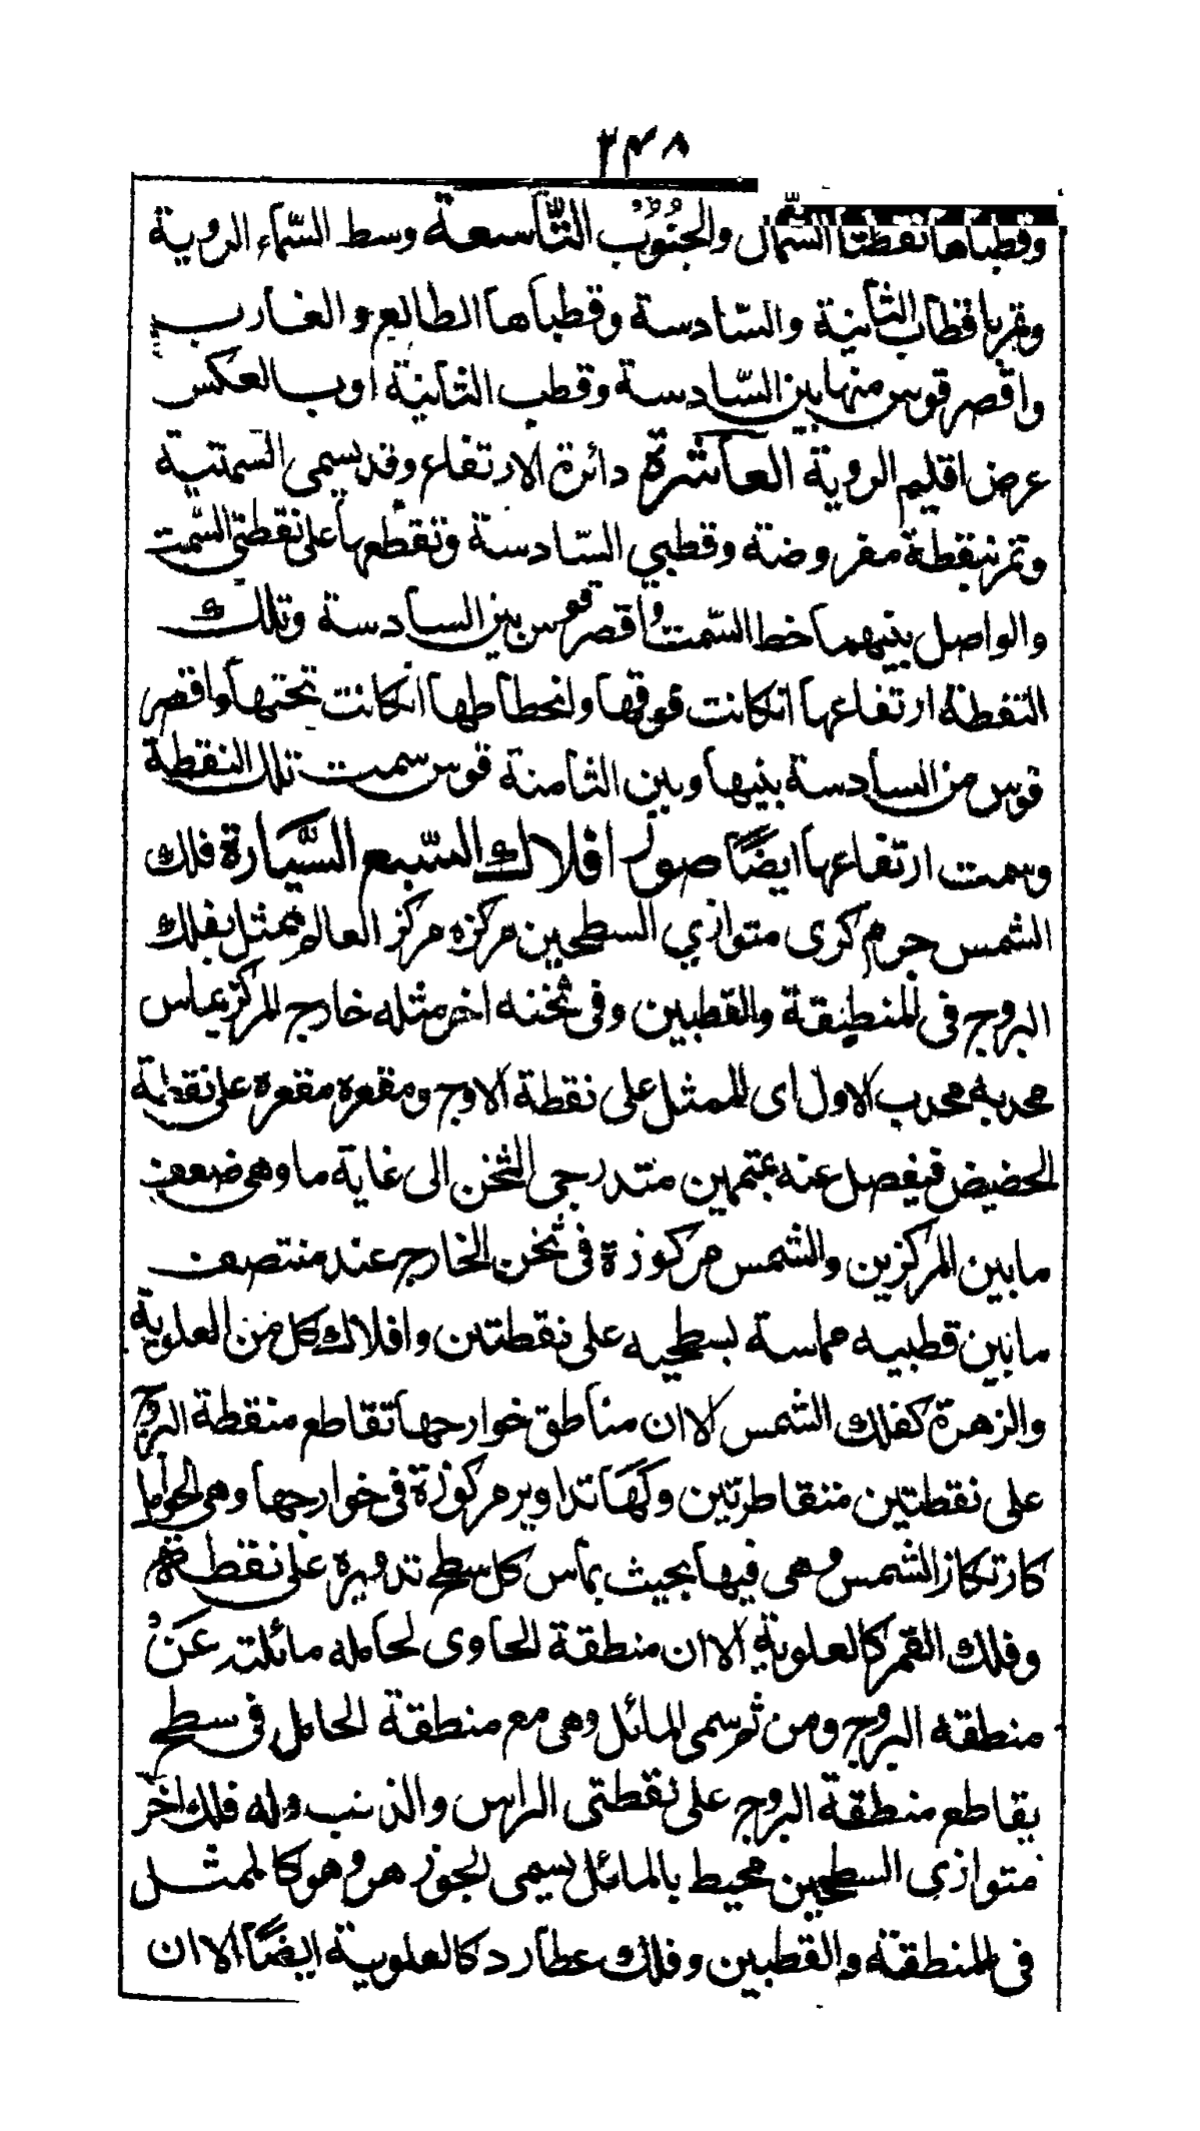 ٣٤٨
وقطباها نقطتا الشمال والجنوب التاسعة وسط السماء الروية
وتمر باقطاب الثانية والسادسة وقطباها الطالع والغارب
واقصر قوس منها بين السادسة وقطب الثانية اوبالعكس
عرض اقليم الروية العاشرة دائرة الارتفاع وقد يسمى السمتية
وتمر بنقطة مفروضة وقطبي السادسة وتقطعها على نقطتي السمت
والواصل بينهما خط السمت واقصر قوس بين السادسة وتلك
النقطة ارتفاعها انكانت فوقها وانحطاطها انكانت تحتها واقصر
قوس من السادسة بينها وبين الثامنة قوس سمت تلك النقطة
وسمت ارتفاعها ايضًا صور افلاك السبع السَّيارة فلك
الشمس جرم كرى متوازي السطحين مركزه مركز العالم يمثل بفلك
البروج فى المنطقة والقطبين وفى ثخنه اخر مثله خارج المركز يماس
محدبه محدب الاول اى الممثل على نقطة الاوج ومقعره مقعره على نقطة
الحضيض فيفصل عنه بمتممين متدرجى الثخن الى غاية ما وهى ضعف
مابين المركزين والشمس مركوزة فى ثخن الخارج عند منتصف
مابين قطبيه مماسة بسطحيه على نقطتين وافلاك كل من العلوية
والزهرة كفلك الشمس الا ان مناطق خوارجها تقاطع منقطة البروج
على نقطتين متقاطرتين وكَهَا تداوير مركوزة فى خوارجها وهى الحوامل
كارتكاز الشمس وهى فيها بحيث يماس كل سطح تدويره على نقطة
وفلك القمر كالعلوية الا ان منطقة الحاوى لحامله مائلته عَنْ
منطقه البروج ومن ثم سمى المائل وهى مع منطقة الحامل فى سطح
يقاطع منطقة البروج على نقطتى الراس والذنب وله فلك اخر
متوازى السطحين محيط بالمائل يسمى الجوزهر وهو كالممثل
فى المنطقة والقطبين وفلك عطارد كالعلوية ايضًا الا ان